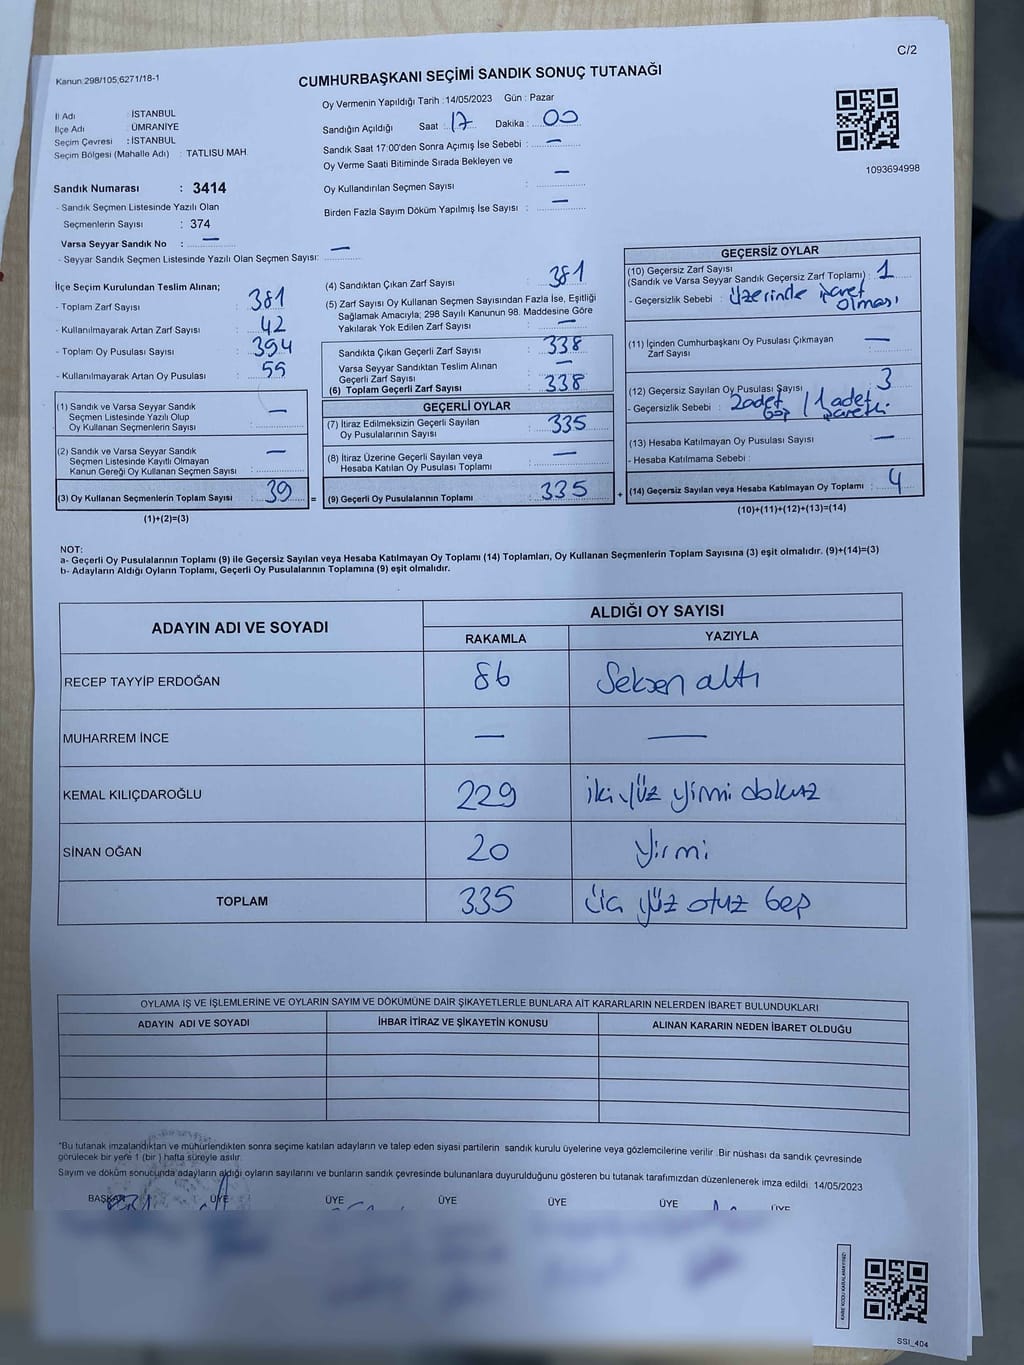 C/2
Kanun:298/105;6271/18-1
CUMHURBAŞKANI SEÇİMİ SANDIK SONUÇ TUTANAĞI
İl Adı : İSTANBUL
İlçe Adı : ÜMRANİYE
Seçim Çevresi : İSTANBUL
Seçim Bölgesi (Mahalle Adı) : TATLISU MAH.
Sandık Numarası : 3414
- Sandık Seçmen Listesinde Yazılı Olan
Seçmenlerin Sayısı : 374
Varsa Seyyar Sandık No : —
- Seyyar Sandık Seçmen Listesinde Yazılı Olan Seçmen Sayısı: —
Oy Vermenin Yapıldığı Tarih : 14/05/2023 Gün : Pazar
Sandığın Açıldığı Saat : 17 Dakika : 00
Sandık Saat 17:00'den Sonra Açımış İse Sebebi : —
Oy Verme Saati Bitiminde Sırada Bekleyen ve
Oy Kullandırılan Seçmen Sayısı : —
Birden Fazla Sayım Döküm Yapılmış İse Sayısı : —
1093694998
İlçe Seçim Kurulundan Teslim Alınan;
- Toplam Zarf Sayısı : 381
- Kullanılmayarak Artan Zarf Sayısı : 42
- Toplam Oy Pusulası Sayısı : 394
- Kullanılmayarak Artan Oy Pusulası : 55
(1) Sandık ve Varsa Seyyar Sandık
Seçmen Listesinde Yazılı Olup
Oy Kullanan Seçmenlerin Sayısı : —
(2) Sandık ve Varsa Seyyar Sandık
Seçmen Listesinde Kayıtlı Olmayan
Kanun Gereği Oy Kullanan Seçmen Sayısı : —
(3) Oy Kullanan Seçmenlerin Toplam Sayısı : 39 =
(1)+(2)=(3)
(4) Sandıktan Çıkan Zarf Sayısı : 381
(5) Zarf Sayısı Oy Kullanan Seçmen Sayısından Fazla İse, Eşitliği
Sağlamak Amacıyla; 298 Sayılı Kanunun 98. Maddesine Göre
Yakılarak Yok Edilen Zarf Sayısı : —
Sandıkta Çıkan Geçerli Zarf Sayısı : 338
Varsa Seyyar Sandıktan Teslim Alınan
Geçerli Zarf Sayısı : —
(6) Toplam Geçerli Zarf Sayısı : 338
GEÇERLİ OYLAR
(7) İtiraz Edilmeksizin Geçerli Sayılan
Oy Pusulalarının Sayısı : 335
(8) İtiraz Üzerine Geçerli Sayılan veya
Hesaba Katılan Oy Pusulası Toplamı : —
(9) Geçerli Oy Pusulalarının Toplamı : 335 +
GEÇERSİZ OYLAR
(10) Geçersiz Zarf Sayısı
(Sandık ve Varsa Seyyar Sandık Geçersiz Zarf Toplamı) : 1
- Geçersizlik Sebebi : üzerinde işaret
olması
(11) İçinden Cumhurbaşkanı Oy Pusulası Çıkmayan
Zarf Sayısı : —
(12) Geçersiz Sayılan Oy Pusulası Sayısı : 3
- Geçersizlik Sebebi : 2 adet boş / 1 adet işaretli
(13) Hesaba Katılmayan Oy Pusulası Sayısı : —
- Hesaba Katılmama Sebebi :
(14) Geçersiz Sayılan veya Hesaba Katılmayan Oy Toplamı : 4
(10)+(11)+(12)+(13)=(14)
NOT:
a- Geçerli Oy Pusulalarının Toplamı (9) ile Geçersiz Sayılan veya Hesaba Katılmayan Oy Toplamı (14) Toplamları, Oy Kullanan Seçmenlerin Toplam Sayısına (3) eşit olmalıdır. (9)+(14)=(3)
b- Adayların Aldığı Oyların Toplamı, Geçerli Oy Pusulalarının Toplamına (9) eşit olmalıdır.
ADAYIN ADI VE SOYADI ALDIĞI OY SAYISI
RAKAMLA YAZIYLA
RECEP TAYYİP ERDOĞAN 86 Seksen altı
MUHARREM İNCE — —
KEMAL KILIÇDAROĞLU 229 iki yüz yirmi dokuz
SİNAN OĞAN 20 yirmi
TOPLAM 335 üç yüz otuz beş
OYLAMA İŞ VE İŞLEMLERİNE VE OYLARIN SAYIM VE DÖKÜMÜNE DAİR ŞİKAYETLERLE BUNLARA AİT KARARLARIN NELERDEN İBARET BULUNDUKLARI
ADAYIN ADI VE SOYADI İHBAR İTİRAZ VE ŞİKAYETİN KONUSU ALINAN KARARIN NEDEN İBARET OLDUĞU
*Bu tutanak imzalandıktan ve mühürlendikten sonra seçime katılan adayların ve talep eden siyasi partilerin sandık kurulu üyelerine veya gözlemcilerine verilir .Bir nüshası da sandık çevresinde
görülecek bir yere 1 (bir ) hafta süreyle asılır.
Sayım ve döküm sonucunda adayların aldığı oyların sayılarını ve bunların sandık çevresinde bulunanlara duyurulduğunu gösteren bu tutanak tarafımızdan düzenlenerek imza edildi. 14/05/2023
BAŞKAN ÜYE ÜYE ÜYE ÜYE ÜYE ÜYE
SSI_404